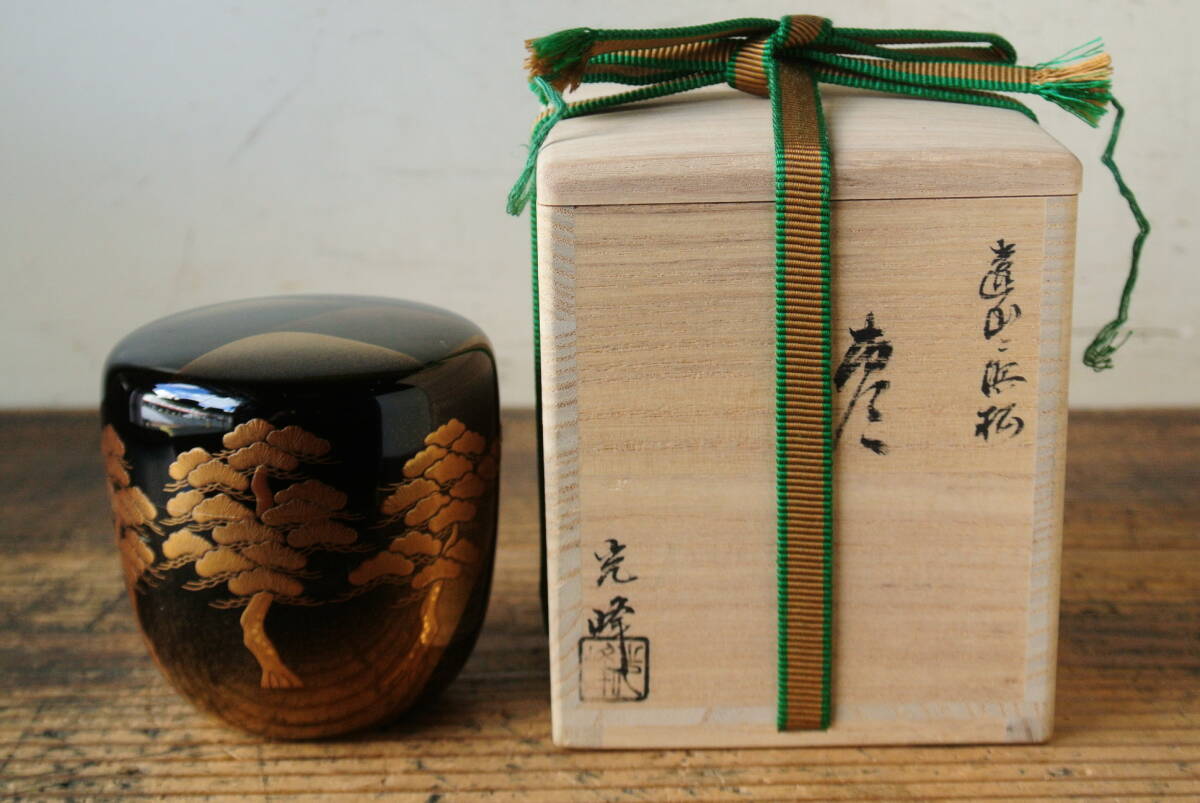 遠山ニ浜松
棗
光峰